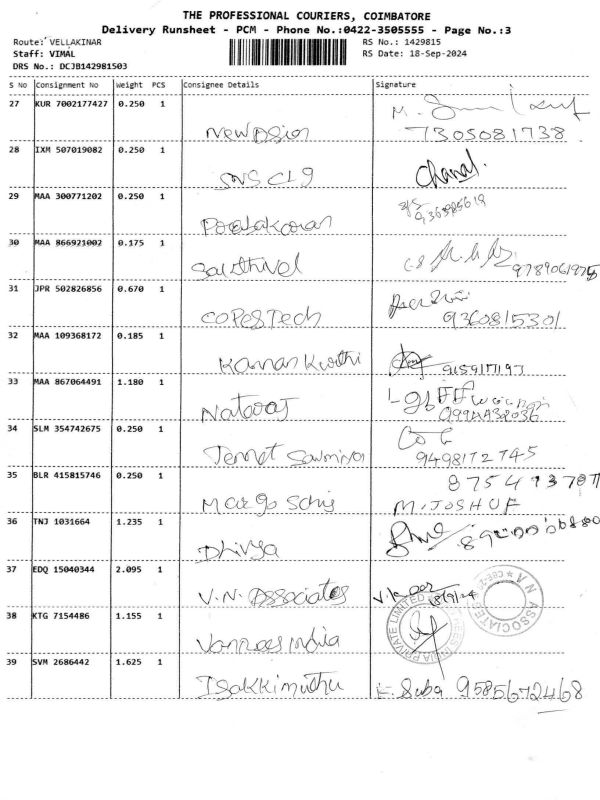 THE PROFESSIONAL COURIERS, COIMBATORE
Delivery Runsheet - PCM - Phone No.:0422-3505555 - Page No.:3
Route: VELLAKINAR
RS No.: 1429815
Staff: VIMAL
RS Date: 18-Sep-2024
DRS No.: DCJB142981503
S No Consignment No Weight PCS Consignee Details Signature
27 KUR 7002177427 0.250 1
New DSign 7305081738
28 IXM 507019082 0.250 1
SNS CLG
29 MAA 300771202 0.250 1
30 MAA 866921002 0.175 1
Sakthivel 9789061975
31 JPR 502826856 0.670 1
COPES Tech 9360815301
32 MAA 109368172 0.185 1
Kannan Kirthi
33 MAA 867064491 1.180 1
Nataraj
34 SLM 354742675 0.250 1
Jennet Sowmiya 9498172745
35 BLR 415815746 0.250 1
Margo Schis M. JOSHUF
36 TNJ 1031664 1.235 1
Dhivya
37 EDQ 15040344 2.095 1
V.N. Associates 18/9/24
38 KTG 7154486 1.155 1
India
39 SVM 2686442 1.625 1
Isakkimuthu E. Suba 9585672468